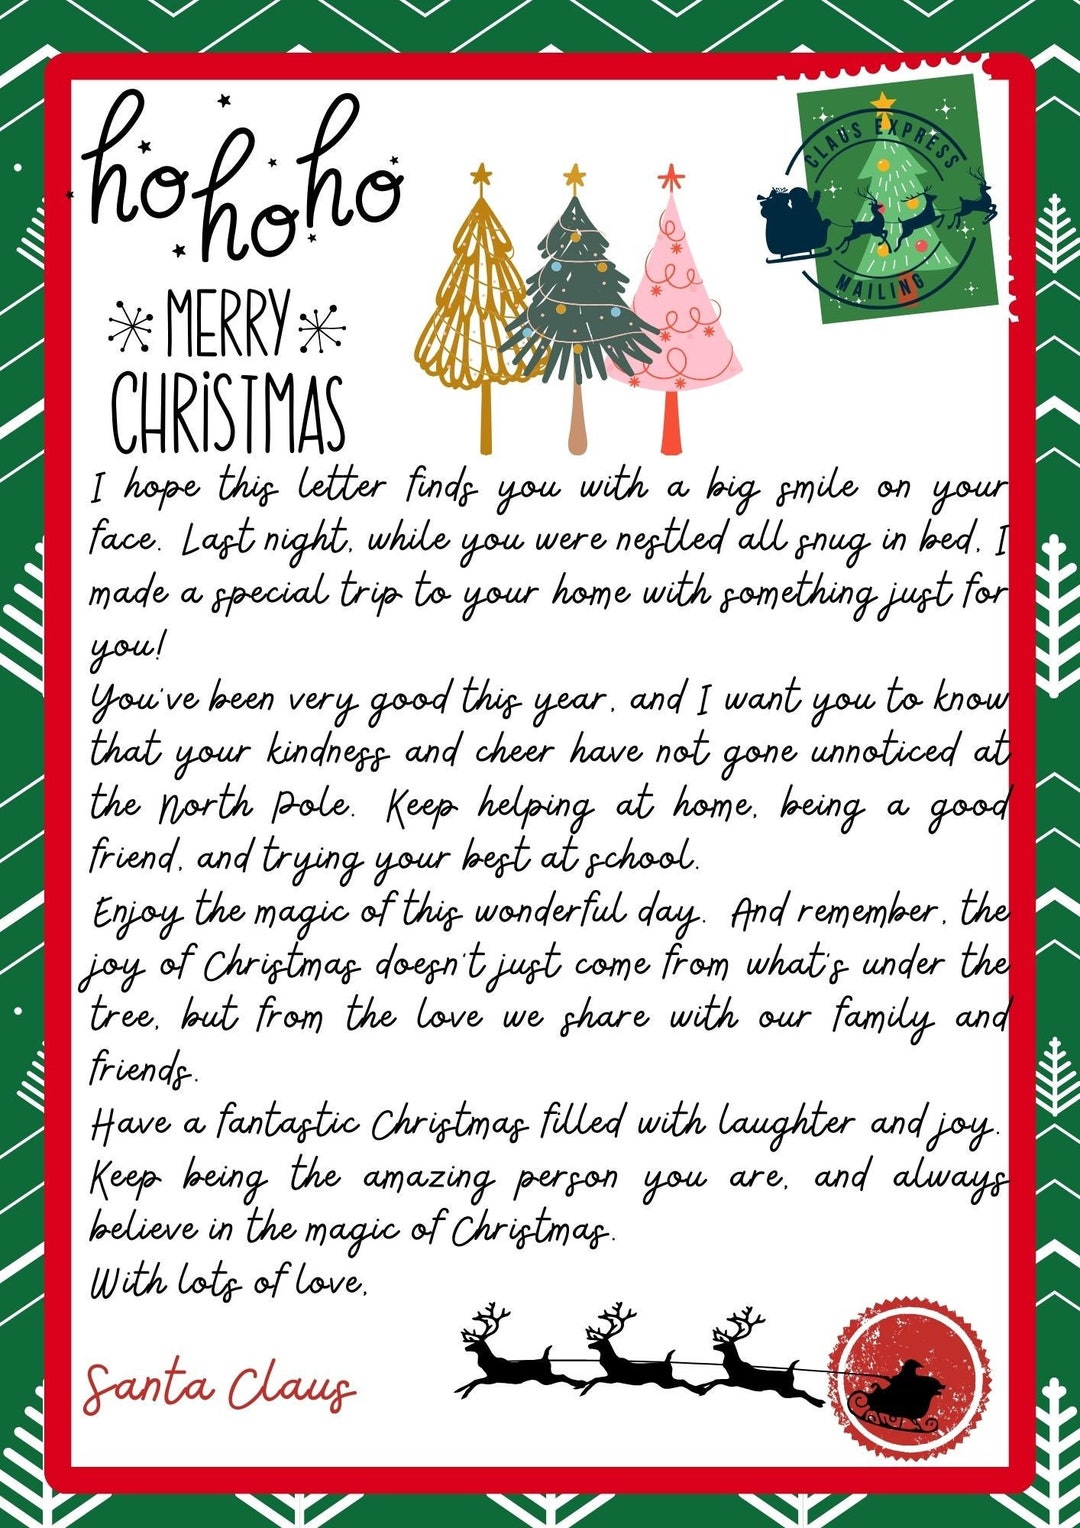 ho ho ho
MERRY
CHRiSTMAS
CLAUS EXPRESS
MAILING
I hope this letter finds you with a big smile on your
face. Last night, while you were nestled all snug in bed, I
made a special trip to your home with something just for
you!
You've been very good this year, and I want you to know
that your kindness and cheer have not gone unnoticed at
the North Pole. Keep helping at home, being a good
friend, and trying your best at school.
Enjoy the magic of this wonderful day. And remember, the
joy of Christmas doesn't just come from what's under the
tree, but from the love we share with our family and
friends.
Have a fantastic Christmas filled with laughter and joy.
Keep being the amazing person you are, and always
believe in the magic of Christmas.
With lots of love,
Santa Claus